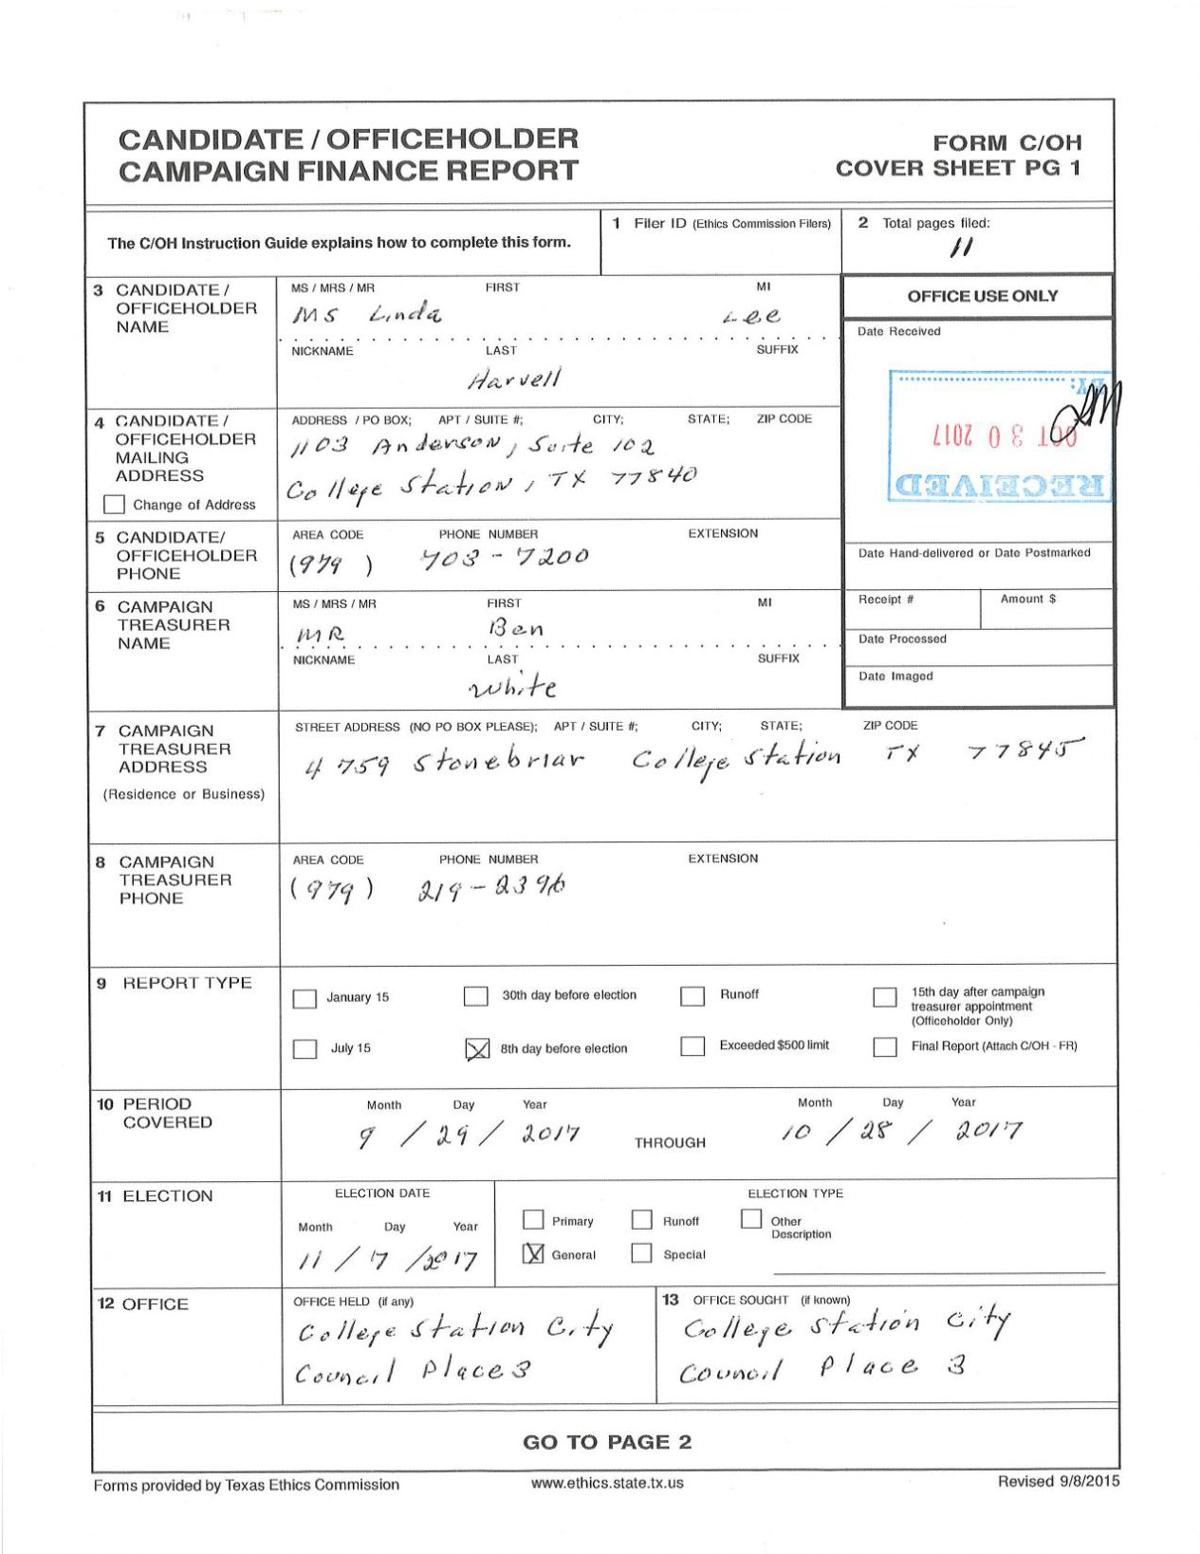 CANDIDATE / OFFICEHOLDER
CAMPAIGN FINANCE REPORT
FORM C/OH
COVER SHEET PG 1
The C/OH Instruction Guide explains how to complete this form.
1 Filer ID (Ethics Commission Filers)
2 Total pages filed:
11
3 CANDIDATE /
OFFICEHOLDER
NAME
MS / MRS / MR FIRST MI
MS Linda Lee
NICKNAME LAST SUFFIX
Harvell
OFFICE USE ONLY
Date Received
BY:
OCT 30 2017
RECEIVED
4 CANDIDATE /
OFFICEHOLDER
MAILING
ADDRESS
Change of Address
ADDRESS / PO BOX; APT / SUITE #; CITY; STATE; ZIP CODE
1103 Anderson, Suite 102
College Station, TX 77840
5 CANDIDATE/
OFFICEHOLDER
PHONE
AREA CODE PHONE NUMBER EXTENSION
(979) 703-7200
Date Hand-delivered or Date Postmarked
Receipt # Amount $
Date Processed
Date Imaged
6 CAMPAIGN
TREASURER
NAME
MS / MRS / MR FIRST MI
MR Ben
NICKNAME LAST SUFFIX
White
7 CAMPAIGN
TREASURER
ADDRESS
(Residence or Business)
STREET ADDRESS (NO PO BOX PLEASE); APT / SUITE #; CITY; STATE; ZIP CODE
4759 Stonebriar College Station TX 77845
8 CAMPAIGN
TREASURER
PHONE
AREA CODE PHONE NUMBER EXTENSION
(979) 219-2396
9 REPORT TYPE
January 15
30th day before election
Runoff
15th day after campaign
treasurer appointment
(Officeholder Only)
July 15
8th day before election
Exceeded $500 limit
Final Report (Attach C/OH - FR)
10 PERIOD
COVERED
Month Day Year
9 / 29 / 2017
THROUGH
Month Day Year
10 / 28 / 2017
11 ELECTION
ELECTION DATE
Month Day Year
11 / 7 / 2017
ELECTION TYPE
Primary
Runoff
Other
Description
General
Special
12 OFFICE
OFFICE HELD (if any)
College Station City
Council Place 3
13 OFFICE SOUGHT (if known)
College Station City
Council Place 3
GO TO PAGE 2
Forms provided by Texas Ethics Commission
www.ethics.state.tx.us
Revised 9/8/2015